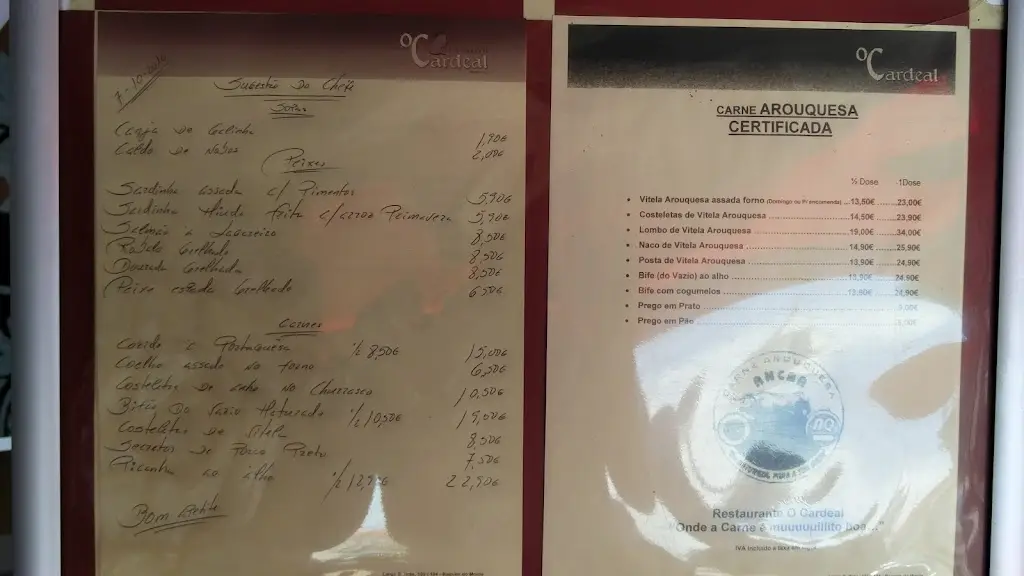 O Cardeal
7-10-2016
Sugestão Do Chefe
Sopas
Canja de Galinha 1,90€
Caldo de Nabos 2,00€
Peixes
Sardinha assada c/ Pimentos 5,90€
Sardinha Miuda frita c/arroz Primavera 5,90€
Salmão à Lagareiro 8,50€
Robalo Grelhado 8,50€
Dourada Grelhada 8,50€
Peixe espada Grelhado 6,50€
Carnes
Cozido à Portuguesa ½ 8,50€ 15,00€
Coelho assado no forno 6,50€
Costeletas de no Churrasco 10,50€
Bifão Do Vazio Maturado ½ 10,50€ 19,00€
Costeletas de Vitela 8,50€
Secretos de Porco Preto 7,50€
Picanha ao alho ½ 12,90€ 22,90€
Bom Apetite
O Cardeal
CARNE AROUQUESA
CERTIFICADA
½ Dose -1Dose
• Vitela Arouquesa assada forno (Domingo ou P/ encomenda) ...13,50€ ......23,00€
• Costeletas de Vitela Arouquesa ...14,50€ ......23,90€
• Lombo de Vitela Arouquesa ...19,00€ ......34,00€
• Naco de Vitela Arouquesa ...14,90€ ......25,90€
• Posta de Vitela Arouquesa ...13,90€ ......24,90€
• Bife (do Vazio) ao alho ...13,90€ ......24,90€
• Bife com cogumelos ...13,90€ ......24,90€
• Prego em Prato
• Prego em Pão
CARNE AROUQUESA
ANCRA
Restaurante O Cardeal
"Onde a Carne é muuuuuiiito boa..."
IVA incluido à taxa em vigor